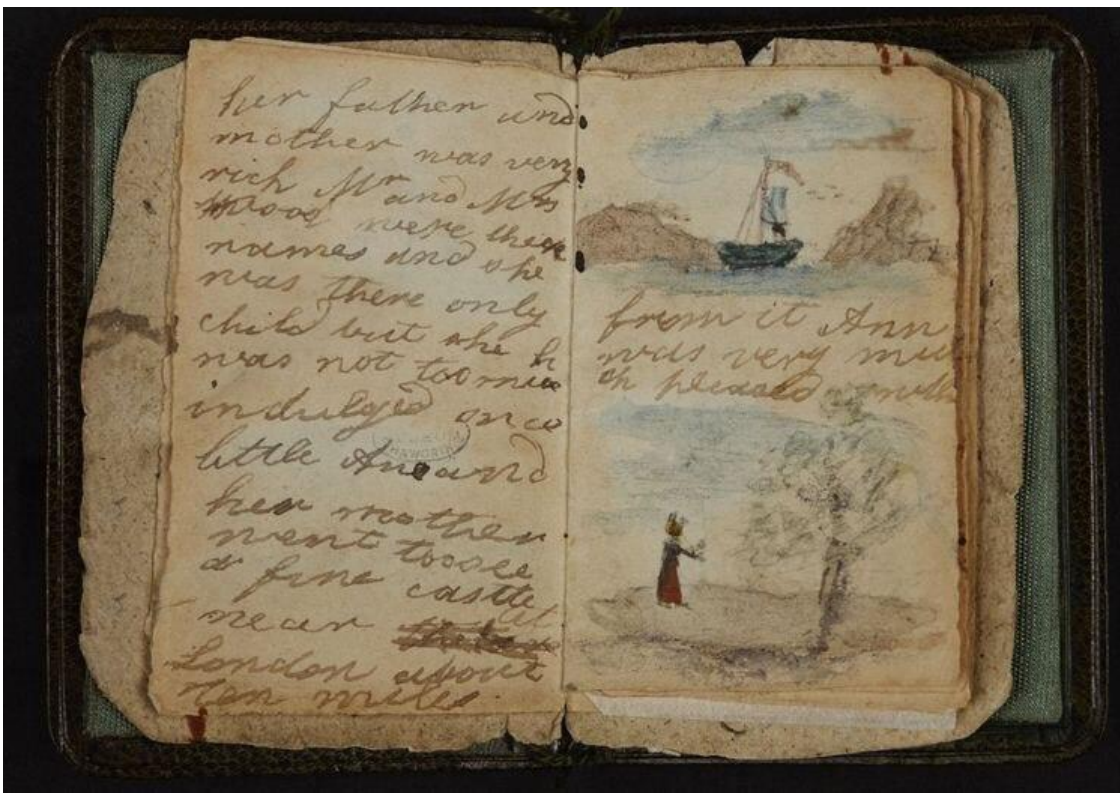 her father and
mother was very
rich Mr and Mrs
wood were there
names and she
was there only
child but she
was not too much
indulged once
little Ane and
her mother
went too see
a fine castle
near
London about
ten miles.
from it Ann
was very mu
ch pleased with
HAWORTH